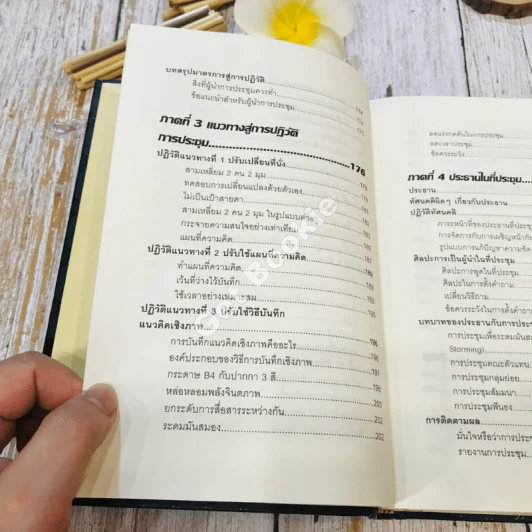 บทสรุปมาตรการสู่การปฏิบัติ
สิ่งที่ผู้นำการประชุมควรทำ
ข้อแนะนำสำหรับผู้นำการประชุม
ภาคที่ 3 แนวทางสู่การปฏิบัติ
การประชุม 176
ปฏิบัติแนวทางที่ 1 ปรับเปลี่ยนที่นั่ง
สามเหลี่ยม 2 คน 2 มุม
ทดสอบการเปลี่ยนแปลงด้วยตัวเอง
ไม่เป็นเป้าสายตา
สามเหลี่ยม 2 คน 2 มุม ในรูปแบบต่างๆ
กระจายความสนใจอย่างเท่าเทียม
แผนที่ความคิด
ปฏิบัติแนวทางที่ 2 ปรับใช้แผนที่ความคิด
ทำแผนที่ความคิด
เว้นที่ว่างไว้บันทึก 190
ใช้เวลาอย่างเหมาะสม 192
ปฏิบัติแนวทางที่ 3 ปรับใช้วิธีบันทึก
แนวคิดเชิงภาพ 196
การบันทึกแนวคิดเชิงภาพคืออะไร 196
องค์ประกอบของวิธีการบันทึกเชิงภาพ 196
กระดาษ B4 กับปากกา 3 สี 198
หล่อหลอมพลังจินตภาพ 200
ยกระดับการสื่อสารระหว่างกัน 202
ระดมมันสมอง 202
ลดแรงกดดันในการประชุม
ลดเวลาประชุม
ข้อควรระวัง
ภาคที่ 4 ประธานในที่ประชุม
ประธาน
ทัศนคติผิดๆ เกี่ยวกับประธาน
ปฏิบัติทัศนคติ
การหน้าที่ของประธานที่ประชุม
การจัดการกับการเผชิญหน้ากัน
รูปแบบการแก้ปัญหาความขัด
ศิลปะการเป็นผู้นำในที่ประชุม
ศิลปะการพูดในที่ประชุม
ศิลปะในการตั้งคำถาม
เปลี่ยนวิธีถาม
ข้อควรระวังในการตั้งคำถาม
บทบาทของประธานกับการประชุม
การประชุมเพื่อระดมมันสมอง
Storming)
การประชุมคณะตัวแทน
การประชุมกลุ่มย่อย
การประชุมสัมมนา
การประชุมฟีนอง
การติดตามผล
มั่นใจหรือว่าการประชุม
รายงานการประชุม